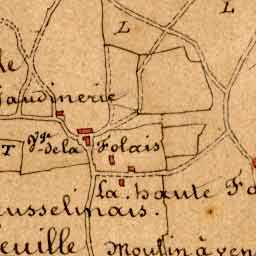 L
L
le
audinerie
T
Vge
de la Folais
La haute Fo
usselinais.
euille
Moulin à ven